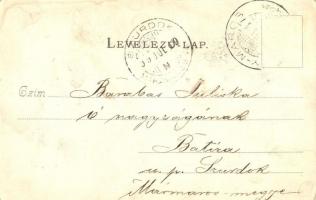 LEVELEZŐ-LAP.
SZURDOK
Czim
Barabás Juliska
Ő nagyságának
Batiza
u. p. Szurdok
Mármaros-megye